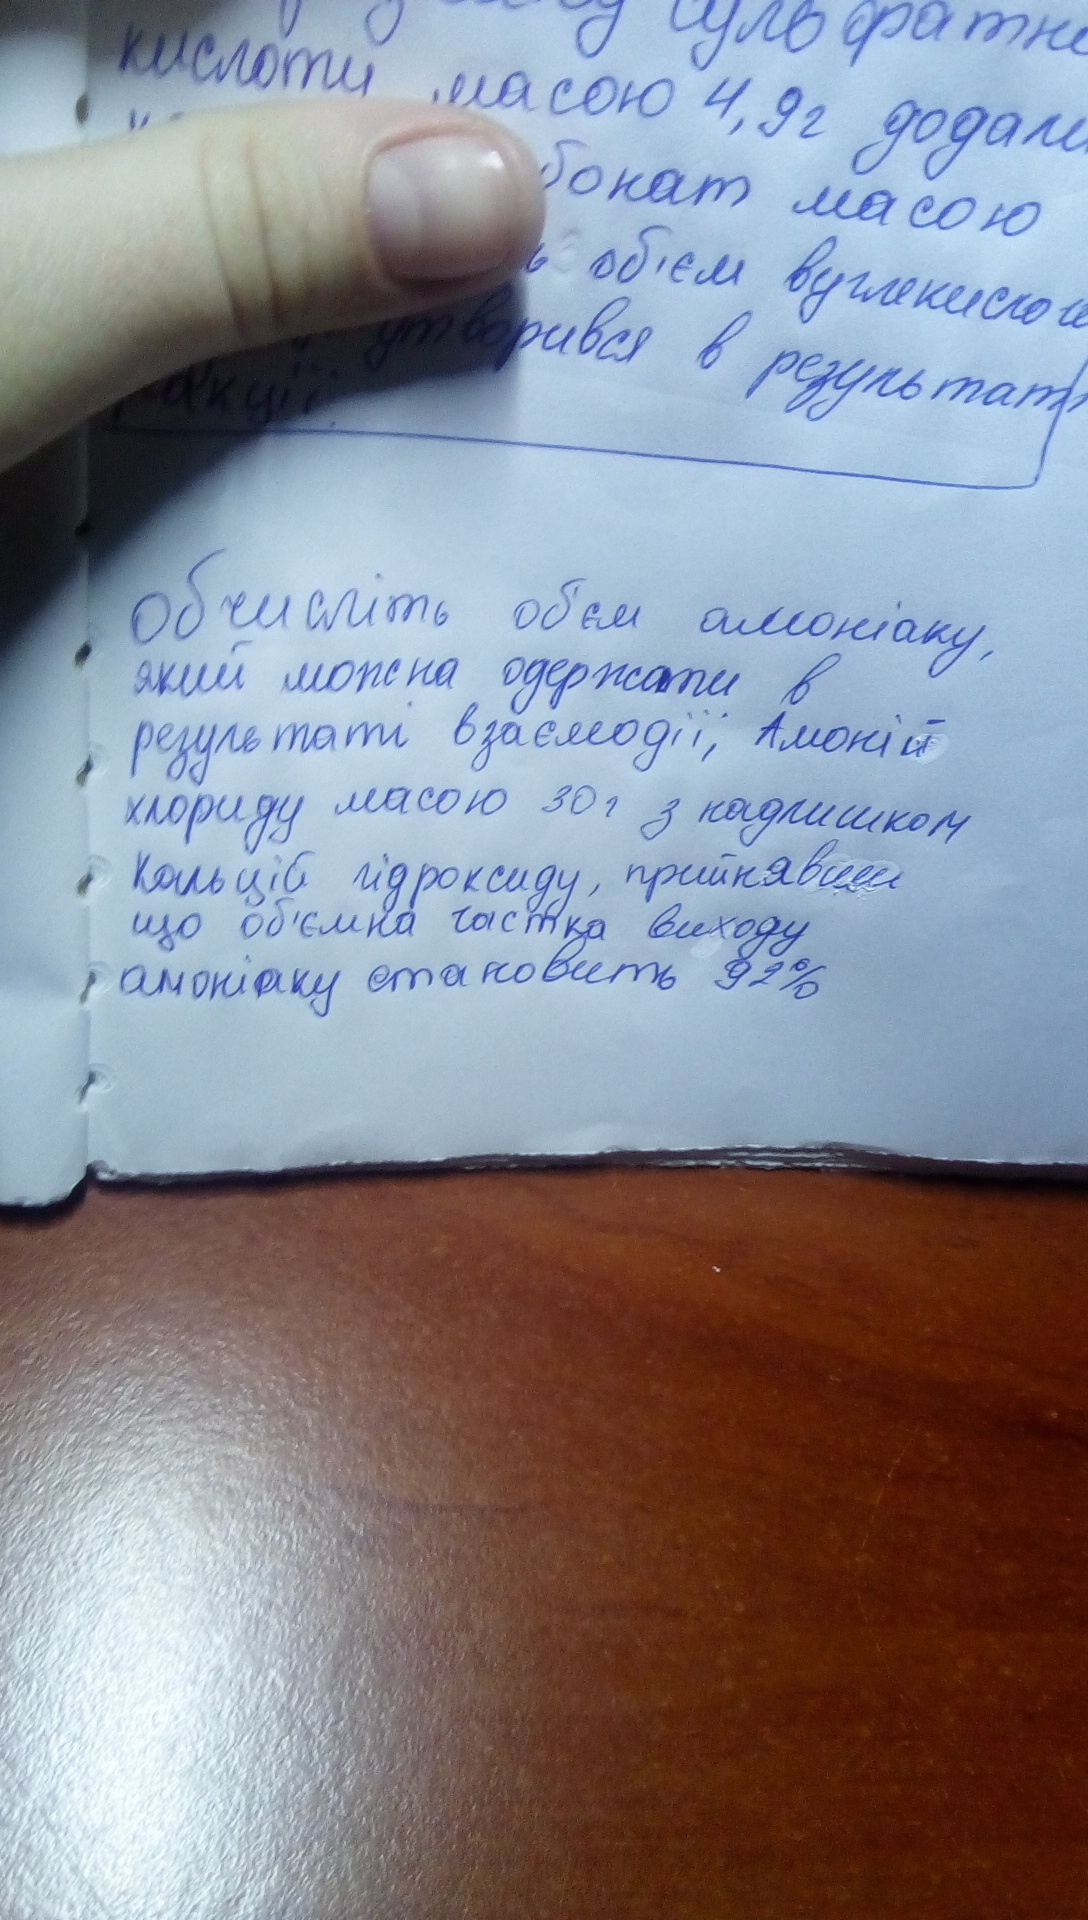 сульфатно
кислоти масою 4,9г додали
бонат масою
об'єм вуглекислого
утворився в результаті
реакції.
Обчисліть об'єм амоніаку,
який можна одержати в
результаті взаємодії, Амоній
хлориду масою 30г з надлишком
Кальцій гідроксиду, прийнявши
що об'ємна частка виходу
амоніаку становить 92%